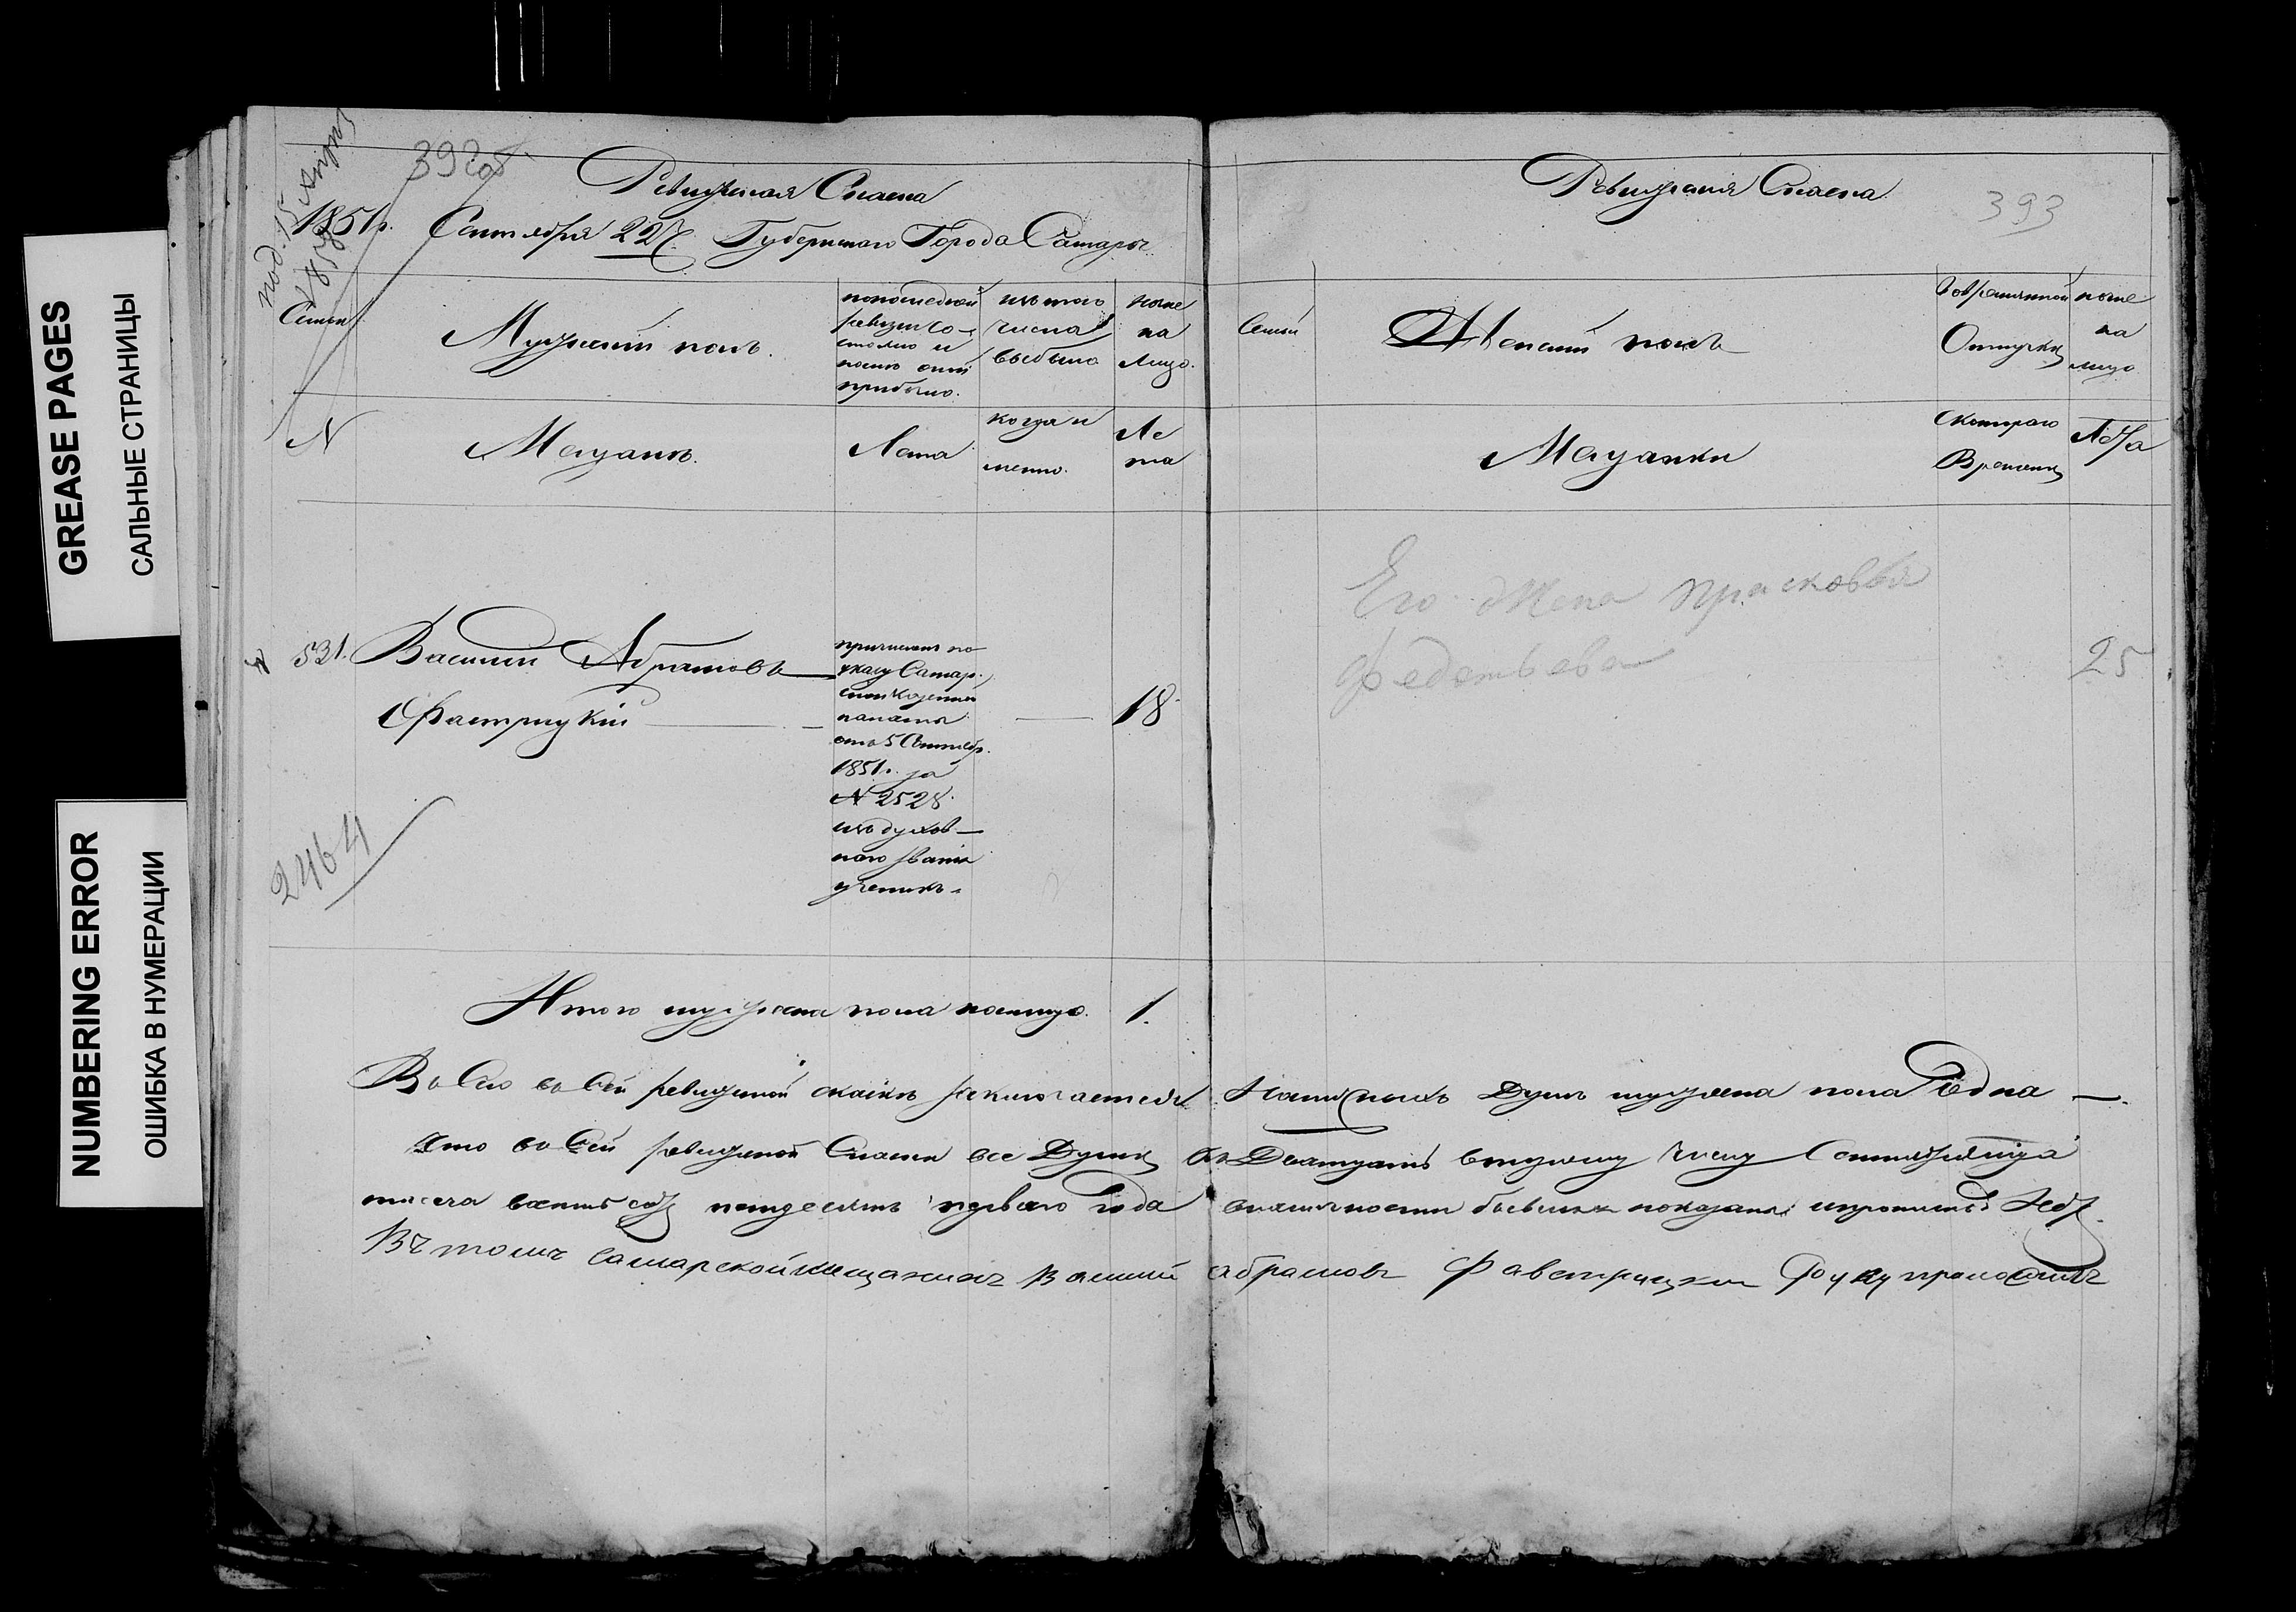 GREASE PAGES
САЛЬНЫЕ СТРАНИЦЫ
NUMBERING ERROR
ОШИБКА В НУМЕРАЦИИ
под. 15
1858
392об
Ревизская Сказка
1851г. Сентября 22 Губернского Города Самары
Семьи
Мужский полъ.
по последней
ревизии со-
стояло и
после оной
прибыло.
изъ того
числа
выбыло
ныне
на
лицо.
N
Мещанъ.
Лета
когда и
менно.
Ле
та
N 531. Василий Абрамовъ
Фастрицкій
причисленъ по
указу Самар.
ской казенной
палаты
отъ 5 Сентябр.
1851г. за
N 2528
изъ духов-
наго звания
ученикъ.
18
2464
Итого мужеска пола налицо. 1.
Ревизская Сказка
393
Семьи
Женский полъ
Во временной
Отлучке
ныне
на
лицо
Мещанки
С котораго
Времени
Лета
Его жена Прасковья
Федотьева
25
Во Сю во Сей ревизской сказке заключается Написныхъ Душъ мужеска пола Една
Что во Сей ревизской Сказки все Души къ Двадцать второму числу Сентября
тысяча пятдесятъ перваго Года бывшия показаны
Въ томъ самарской мещанинъ Василий абрамовъ Фавстрицкий Руку приложилъ